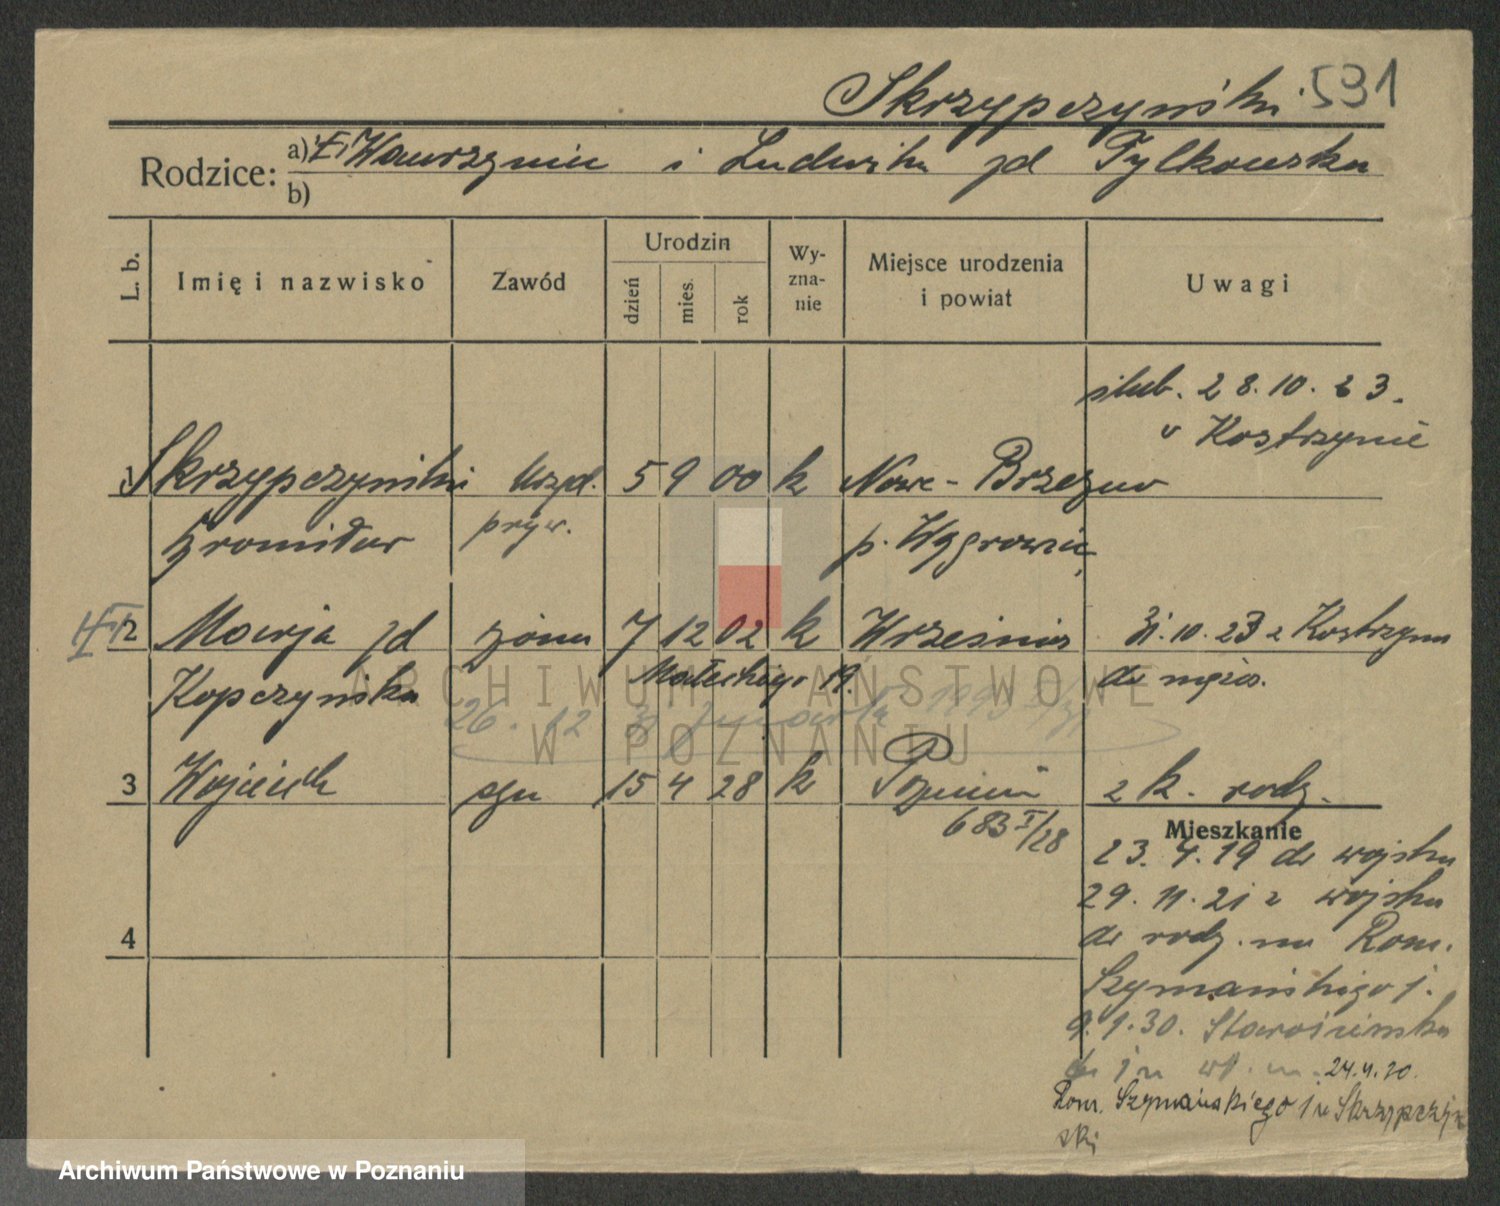 Skrzypczyński 531
Rodzice: a) Wawrzynie i Ludwika zd Tylkowska
b)
L. b. Imię i nazwisko Zawód Urodzin dzień mies. rok Wy-zna-nie Miejsce urodzenia i powiat Uwagi
ślub. 28.10.23.
w Kostrzynie
1 Skrzypczyński Urzęd. 5 9 00 k Nowe-Brzezno
pryw. p. Wągrowiec
2 Marja zd żona 7 12 02 k Września 31.10.23 z Kostrzyna
Kopczyńska Małeckiego 19. do męża.
26. 12
3 Wojciech syn 15 4 28 k Poznań z k. rodz.
683 I/28 Mieszkanie
23. 4. 19 do wojska
29. 11. 21 z wojska
do rodz. na Rom.
Szymańskiego 1.
9.1.30. Starościńska
24.4.30
Rom. Szymańskiego 1 u Skrzypczyń
ski
ARCHIWUM PAŃSTWOWE
W POZNANIU
Archiwum Państwowe w Poznaniu